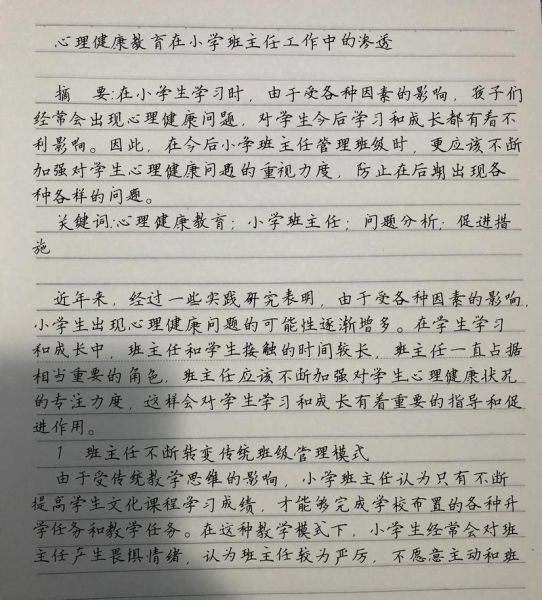 心理健康教育在小学班主任工作中的渗透
摘 要:在小学生学习时，由于受各种因素的影响，孩子们
经常会出现心理健康问题，对学生今后学习和成长都有着不
利影响。因此，在今后小学班主任管理班级时，更应该不断
加强对学生心理健康问题的重视力度，防止在后期出现各
种各样的问题。
关键词:心理健康教育；小学班主任；问题分析；促进措
施
近年来，经过一些实践研究表明，由于受各种因素的影响，
小学生出现心理健康问题的可能性逐渐增多。在学生学习
和成长中，班主任和学生接触的时间较长，班主任一直占据
相当重要的角色，班主任应该不断加强对学生心理健康状况
的专注力度，这样会对学生学习和成长有着重要的指导和促
进作用。
1 班主任不断转变传统班级管理模式
由于受传统教学思维的影响，小学班主任认为只有不断
提高学生文化课程学习成绩，才能够完成学校布置的各种升
学任务和教学任务。在这种教学模式下，小学生经常会对班
主任产生畏惧情绪，认为班主任较为严厉，不愿意主动和班